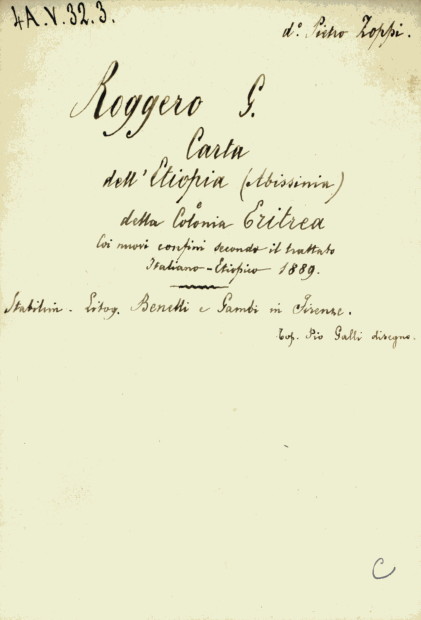 4A.V.32.3.
d.º Pietro Zoppi.
Roggero G.
Carta
dell'Etiopia (Abissinia)
della Colonia Eritrea
Coi nuovi confini secondo il trattato
Italiano-Etiopico 1889.
Stabilim. Litog. Benelli e Gambi in Firenze.
Top. Pio Galli disegno.
C